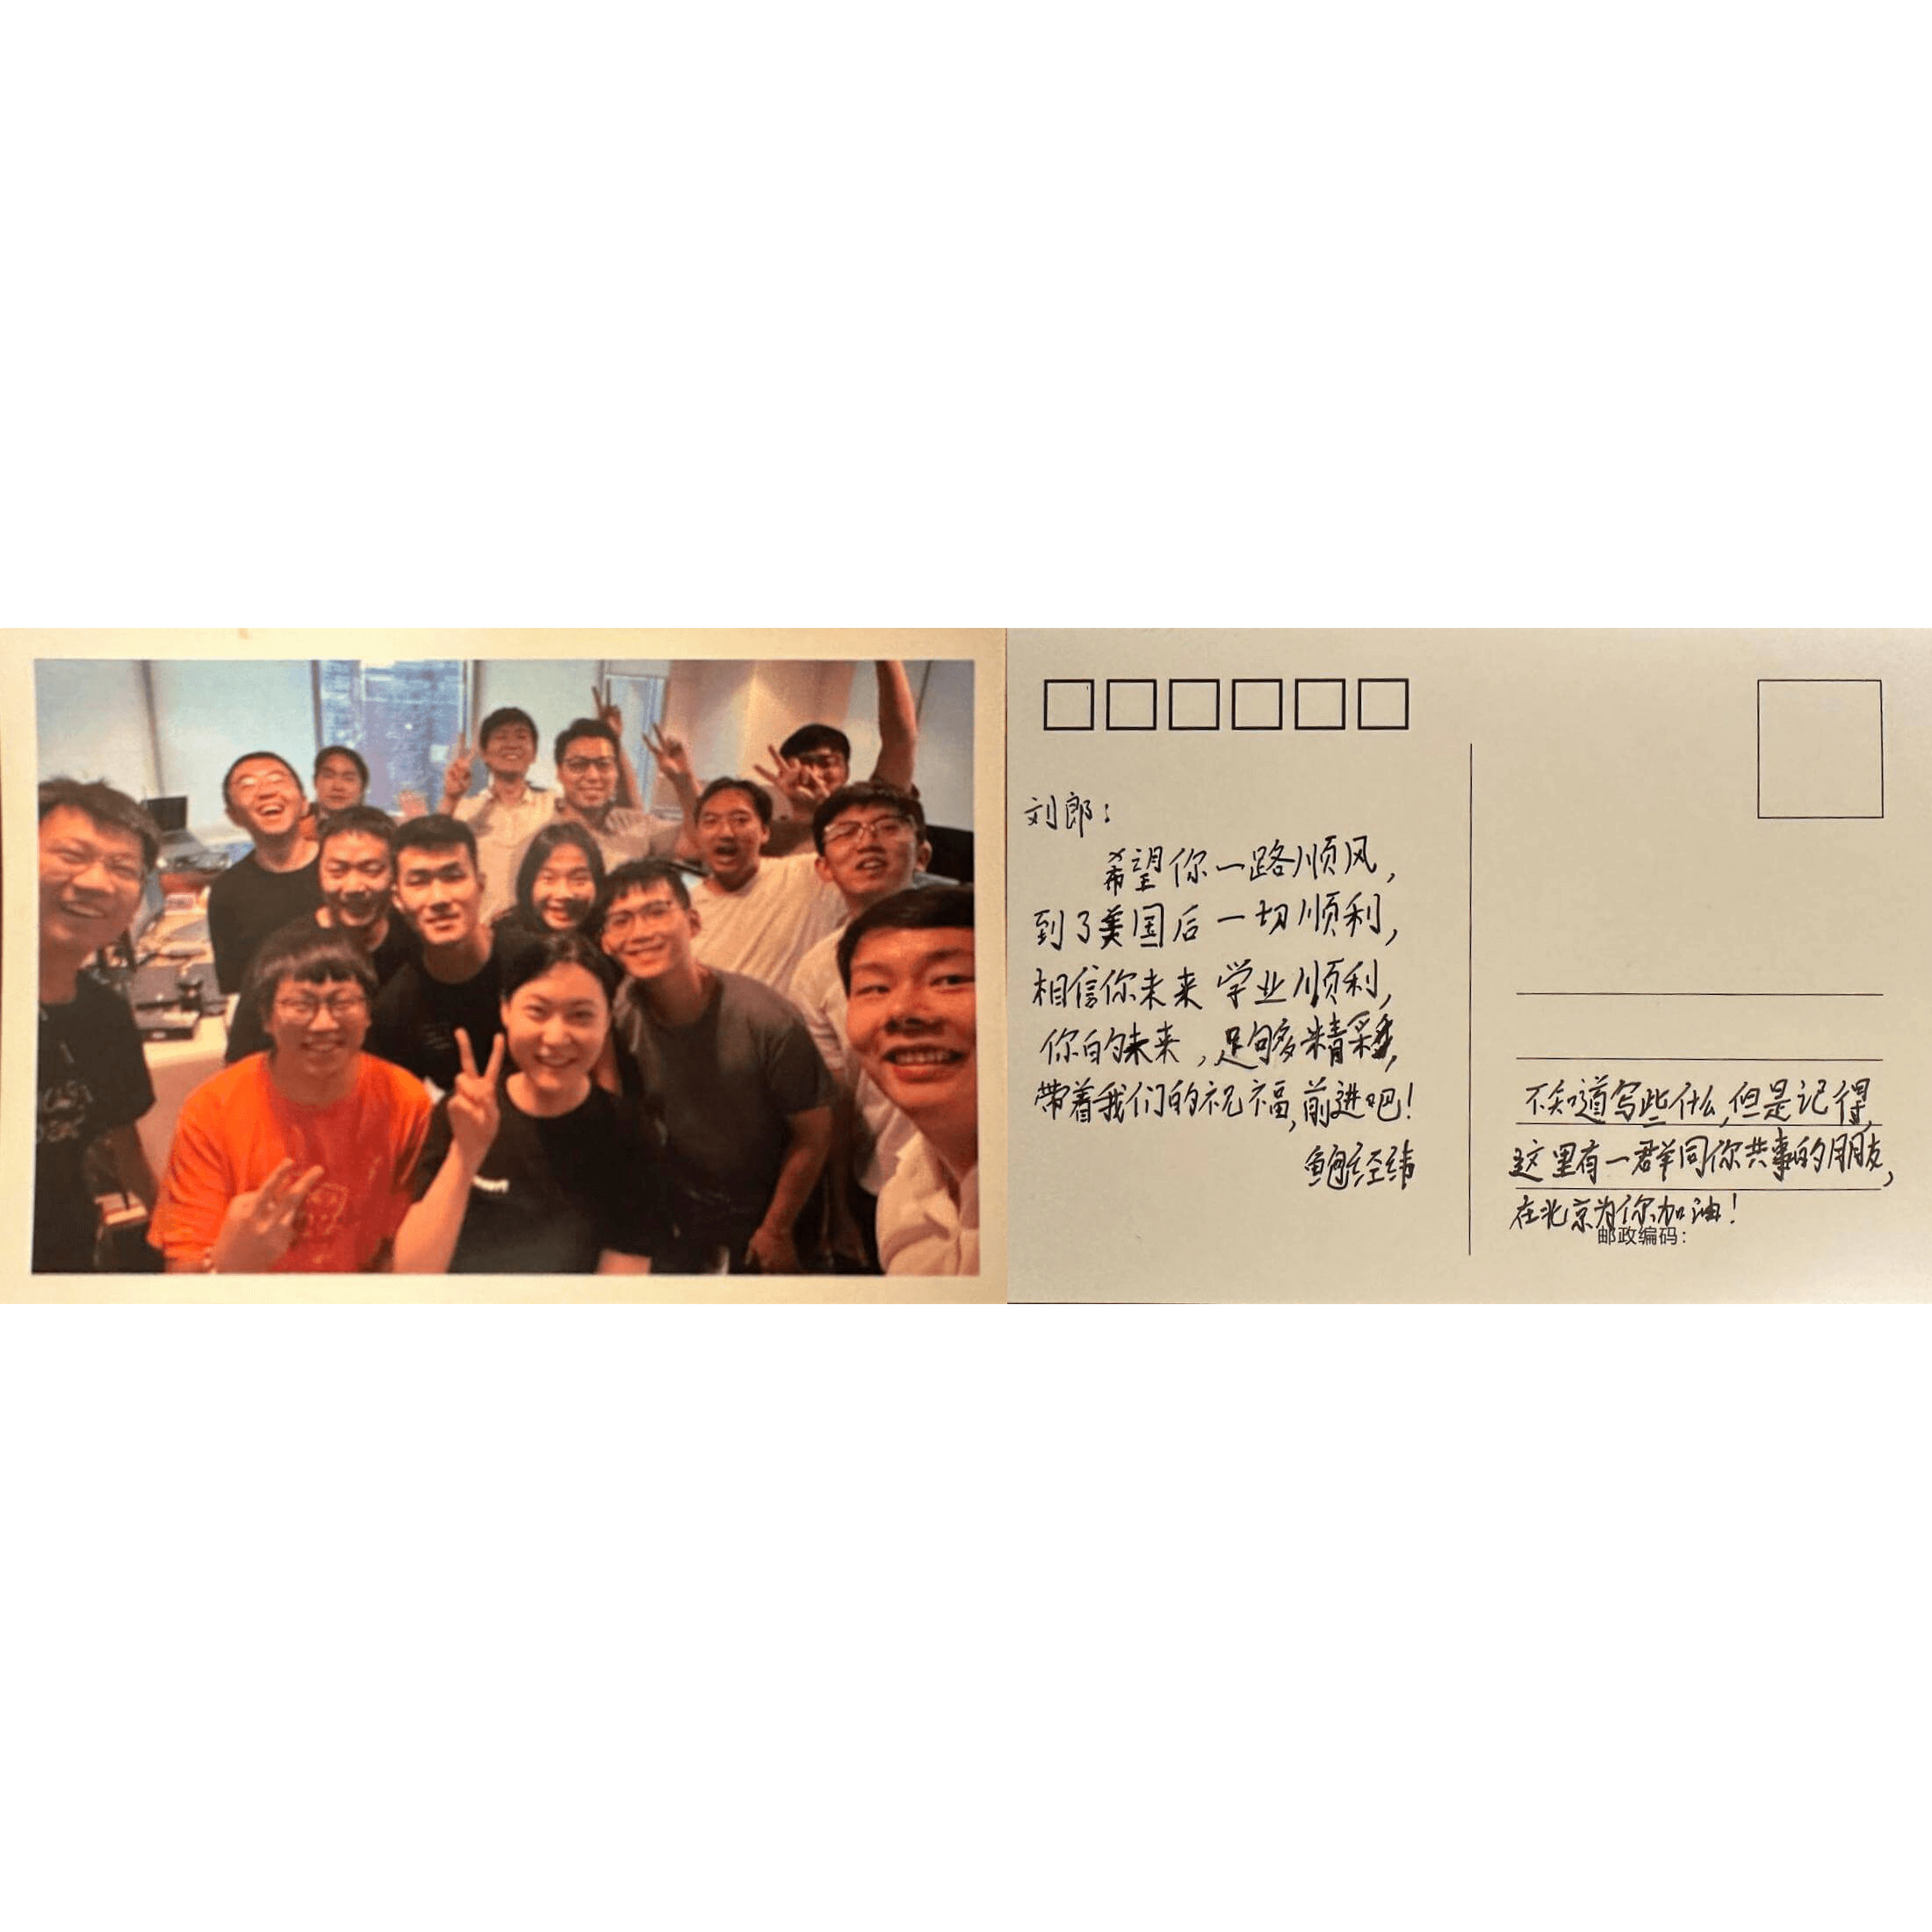 刘郎：
希望你一路顺风，
到了美国后一切顺利，
相信你未来学业顺利，
你的未来，足够精彩，
带着我们的祝福，前进吧！
鲍经纬
不知道写些什么，但是记得，
这里有一群同你共事的朋友，
在北京为你加油！
邮政编码：